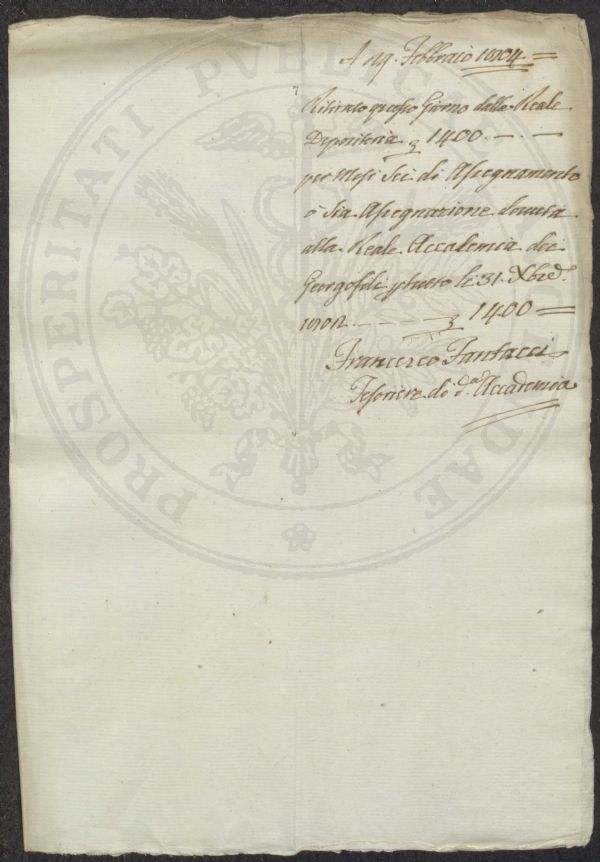 A 19. Febbraio 1804
Ritirato questo Giorno dalla Reale
Depositeria 1400
per Mesi Sei di Assegnamento
o sia Assegnazione dovuta
alla Reale Accademia dei
Georgofili a tutto li 31. Xbre
1400
Francesco Fantacci
Tesoriere di d.a Accademia
PROSPERITATI PUBLICAE AUGENDAE